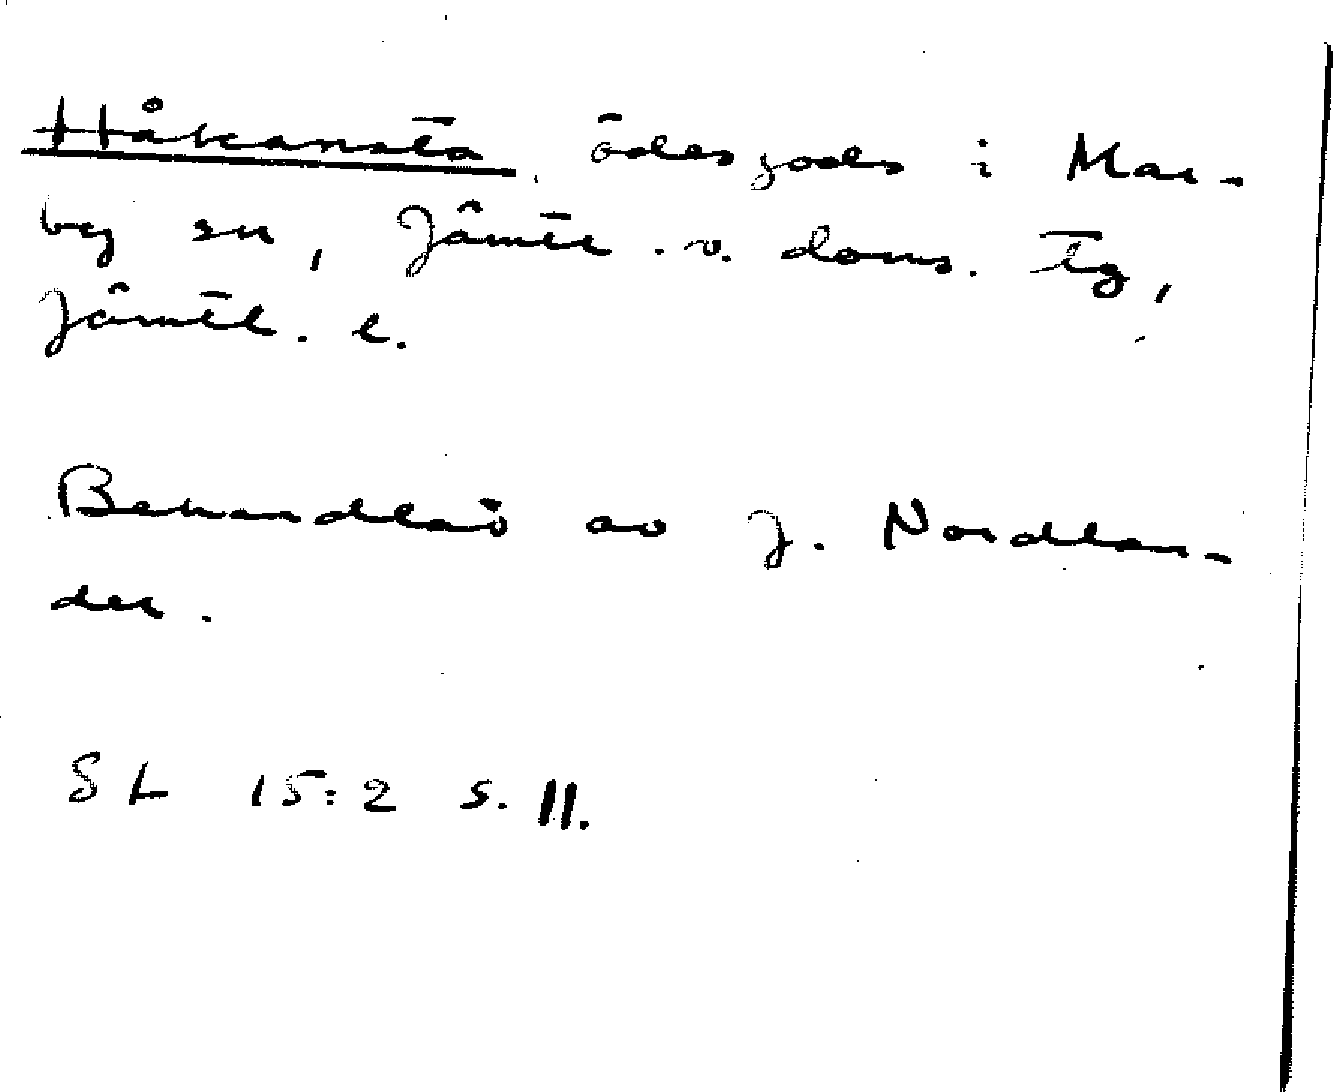 Håkansta, ödesgods i Mar-
by sn, Jämtl. v. doms. tg,
Jämtl. l.
Behandlat av J. Nordlan-
der.
SL 15:2 s. 11.